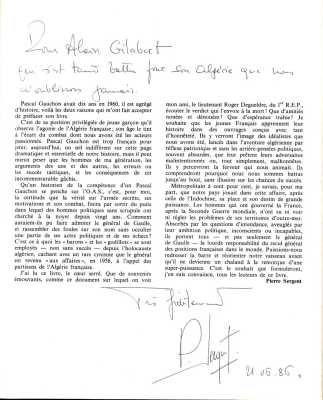 Pour Alain Gilabert
Pascal Gauchon avait dix ans en 1960, il est agrégé
d'histoire, voilà les deux raisons qui m'ont fait accepter
de préfacer son livre.
C'est de sa position privilégiée de jeune garçon qu'il
observa l'agonie de l'Algérie française ; son âge le tint
à l'écart du combat dont nous avons été les acteurs
passionnés. Pascal Gauchon est trop français pour
pour, aujourd'hui, un œil indifférent sur cette page
dramatique et essentielle de notre histoire, mais il peut
mieux peser que les hommes de ma génération, les
arguments des uns et des autres, les erreurs ou
les succès tactiques, et les conséquences de cet
incommensurable gâchis.
Qu'un historien de la compétence d'un Pascal
Gauchon se penche sur l'O.A.S., c'est, pour moi,
la certitude que la vérité sur l'armée secrète, ses
motivations et ses combats, finira par sortir du puits
dans lequel des hommes politiques sans scrupule ont
cherché à la noyer depuis vingt ans. Comment
auraient-ils pu faire admirer le général de Gaulle,
et rassembler des foules sur son nom sans occulter
une partie de ses actes politiques et de ses échecs?
C'est ce à quoi les « barons » et les « godillots » se sont
employés — non sans succès — depuis l'holocauste
algérien, cachant avec un rare cynisme que le général
est revenu « aux affaires », en 1958, à l'appel des
partisans de l'Algérie française.
J'ai lu ce livre, le cœur serré. Que de souvenirs
émouvants, comme ce document sur lequel on voit
mon ami, le lieutenant Roger Degueldre, du 1er R.E.P.,
écouter le verdict que l'envoie à la mort! Que d'amitiés
nouées et dénouées! Que d'espérance trahie! Je
souhaite que les jeunes Français apprennent leur
histoire dans des ouvrages conçus avec tant
d'honnêteté. Ils y verront l'image des idéalistes que
nous avons été, lancés dans l'aventure algérienne par
réflexe patriotique et sans les arrière-pensées politiques,
souvent absurdes, que leur prêtent leurs adversaires
malintentionnés ou, tout simplement, malhonnêtes.
Ils y percevront la ferveur qui nous animait. Ils
comprendront pourquoi nous nous sommes battus
jusqu'au bout, sans illusion sur les chances du succès.
Métropolitain à cent pour cent, je savais, pour ma
part, que notre pays jouait dans cette affaire, après
celle de l'Indochine, sa place et son destin de grande
puissance. Les hommes qui ont gouverné la France,
après la Seconde Guerre mondiale, n'ont su ni voir
ni régler les problèmes de ses territoires d'outre-mer.
Absorbés par les questions d'intendance, aveuglés par
leur ambition politique, inconscients ou incapables,
ils portent tous — et pas seulement le général
de Gaulle — la lourde responsabilité du recul général
des positions françaises dans le monde. Puissions-nous
redresser la barre et réorienter notre vaisseau avant
qu'il ne devienne un chaland à la remorque d'une
super-puissance. C'est le souhait que formuleront,
j'en suis convaincu, tous les lecteurs de ce livre.
Pierre Sergent
21.06.86.